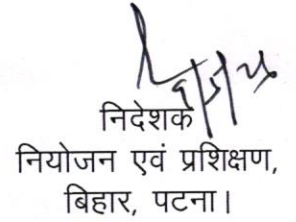 निदेशक
नियोजन एवं प्रशिक्षण,
बिहार, पटना।